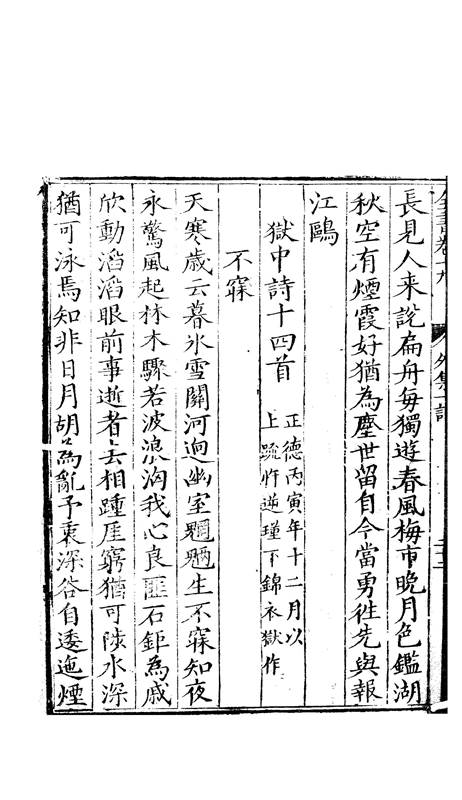 全書卷十九 外集一詩
長見人来說扁舟每獨遊春風梅市晚月色鑑湖
秋空有煙霞好猶為塵世留自今當勇徃先與報
江鷗
獄中詩十四首
正德丙寅年十二月以
上疏忤逆瑾下錦衣獄作
不寐
天寒歲云暮氷雪關河迥幽室魍魎生不寐知夜
永驚風起林木驟若波浪洶我心良匪石詎為戚
欣動滔滔眼前事逝者去相踵厓窮猶可陟水深
猶可泳焉知非日月胡為亂予衷深谷自逶迤煙